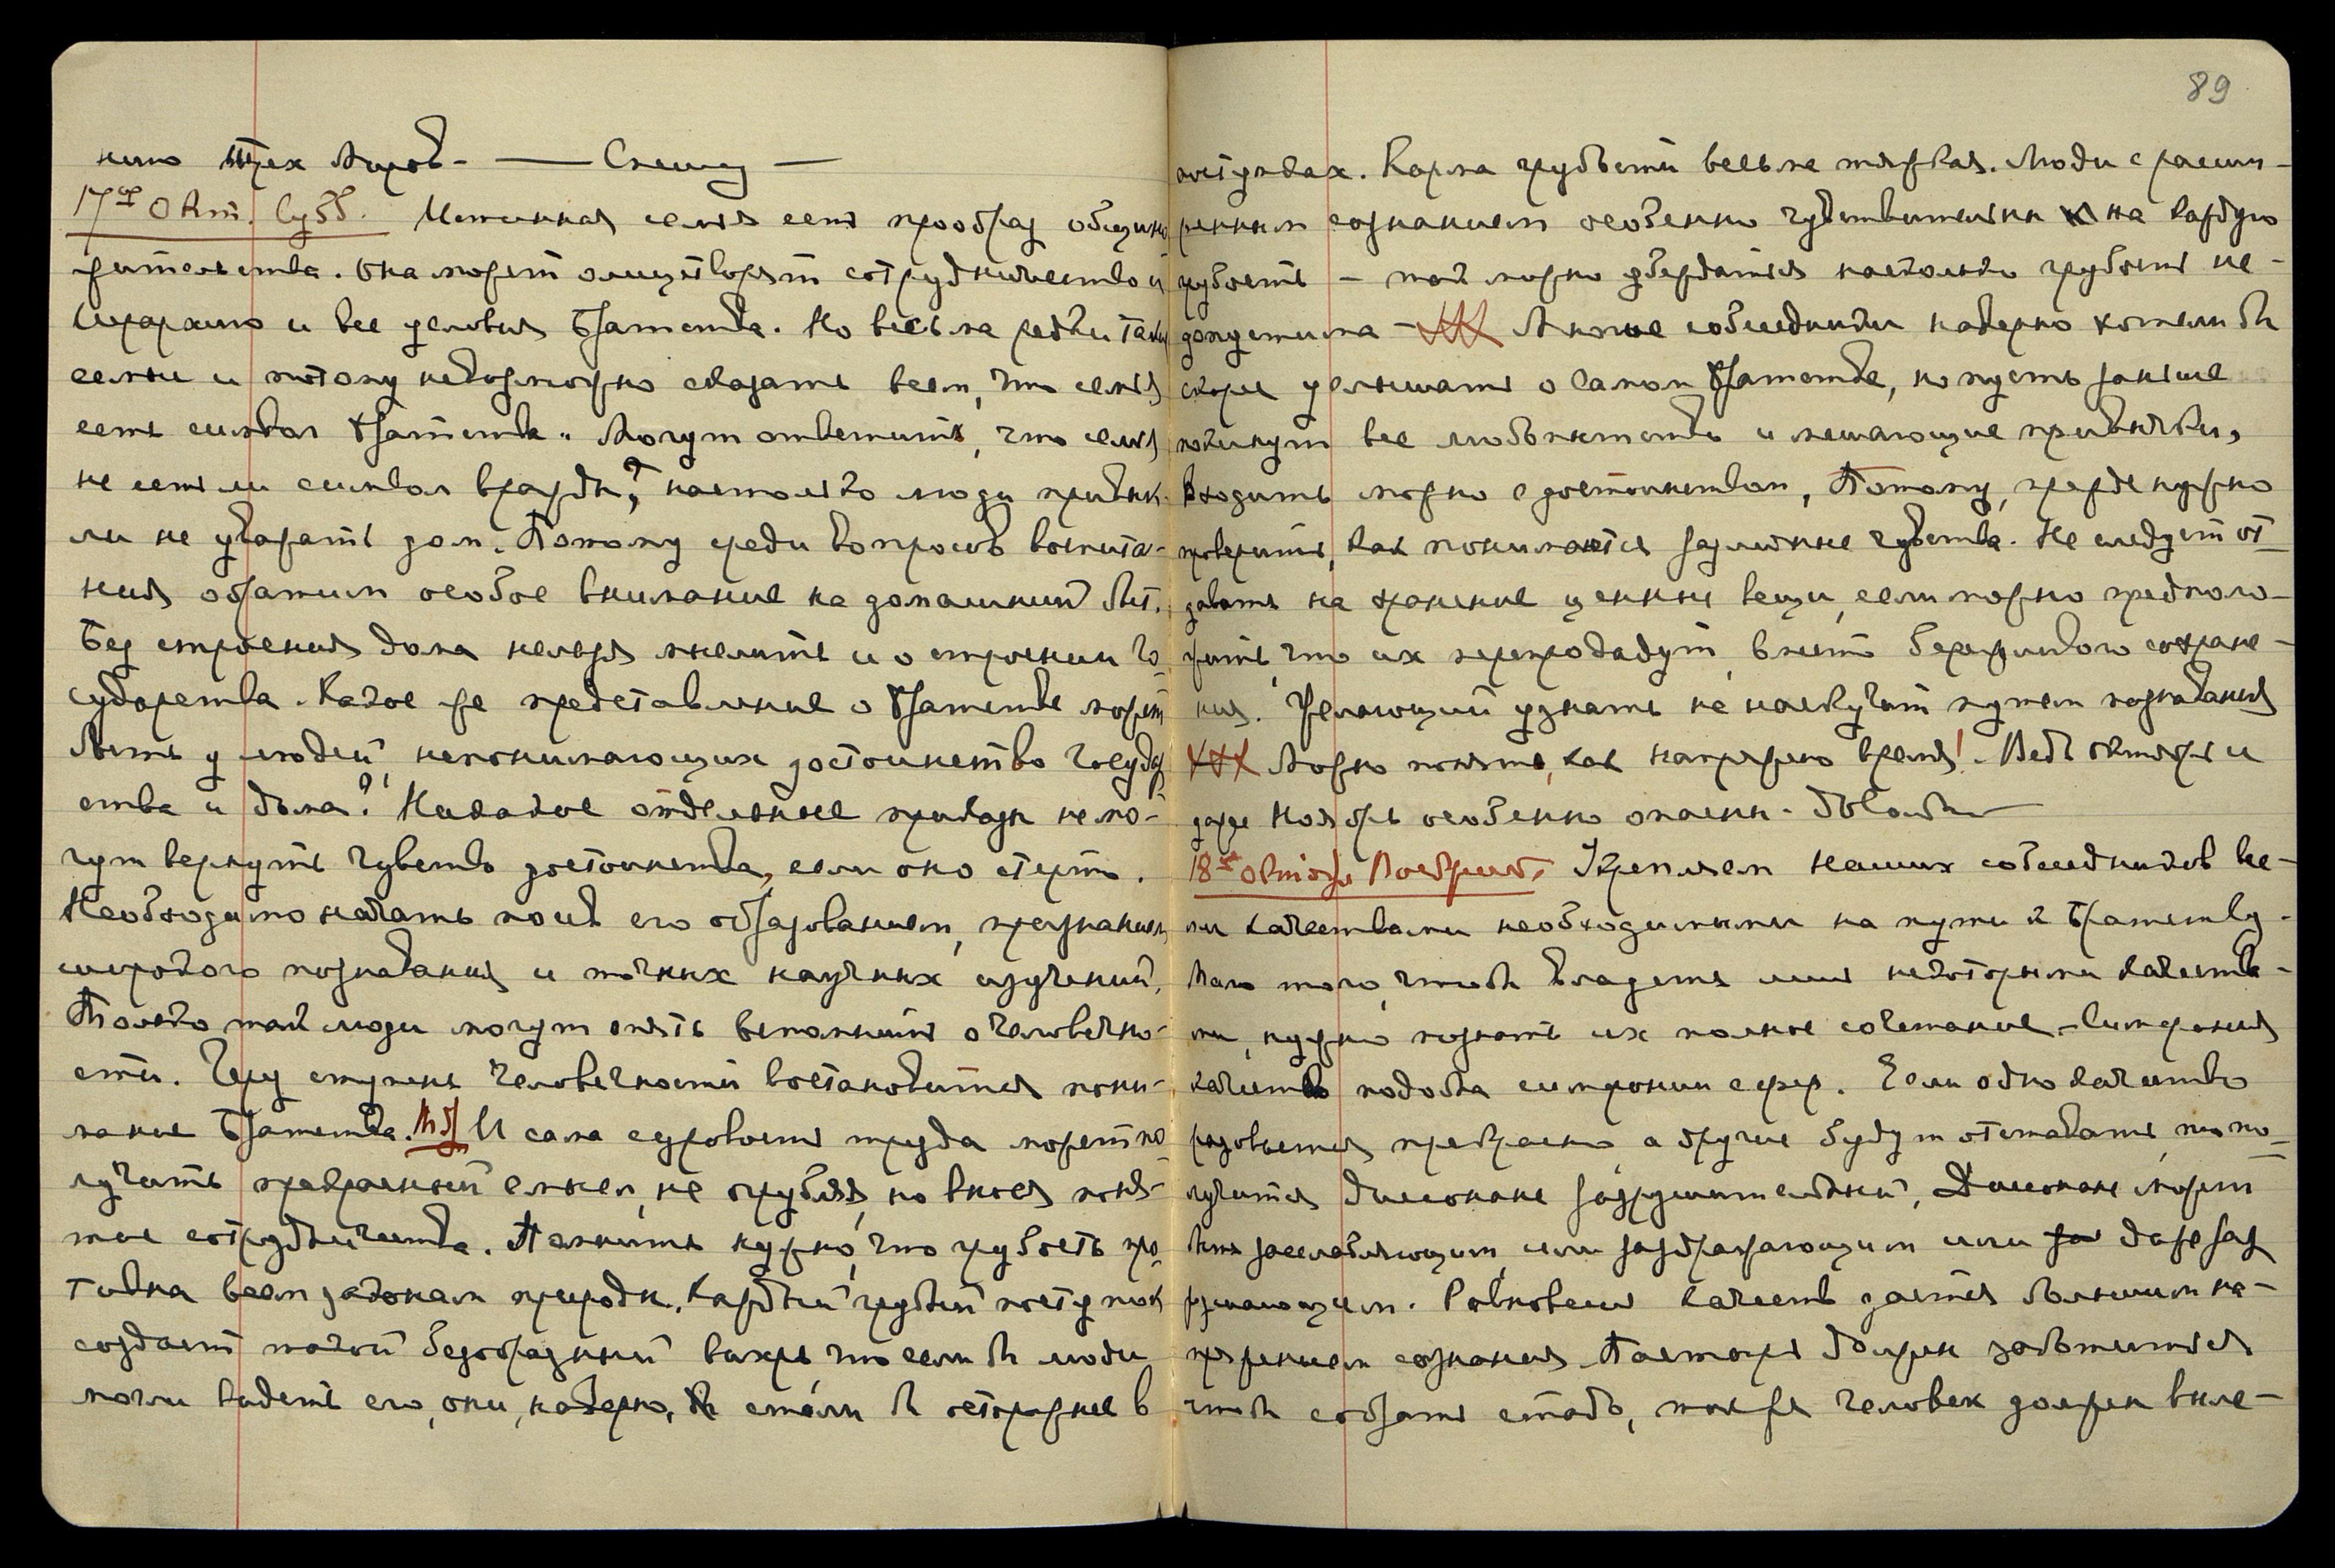 нию Трех Миров — — Спешу —
17ое Окт. Субб. Истинная семья есть прообраз общинно
жительства. Она может олицетворят сотрудничество и
Иерархию и все условия Братства. Но весьма редки такие
семьи и потому невозможно сказать всем, что семья
есть символ Братства. Могут ответить, что семья
не есть ли символ вражды? настолько люди привык-
ли не уважать дом. Потому среди вопросов воспита-
ния обратим особое внимание на домашний быт.
Без строения дома нельзя мыслить и о строении го-
сударства. Какое же представление о Братстве может
быть у людей, непонимающих достоинство государ
ства и дома? Никакие отдельные приказы не мо-
гут вернуть чувство достоинства, если оно стерто.
Необходимо начать посев его образованием, признанием
широкого познавания и точных научных изучений.
Только так люди могут опять вспомнить о человечно-
сти. Чрез ступень человечности востановится пони-
мание Братства. И сама суровость труда может по-
лучить прекрасный смысл, не огрубляя, но внося поня-
тие сотрудничества. Помнить нужно, что грубость про-
тивна всем законам природы. Каждый грубый поступок
создает такой безобразный вихрь, что если бы люди
могли видеть его, они, наверно, стали бы осторожнее в
89
поступках. Карма грубости весьма тяжкая. Люди с расши-
ренным сознанием особенно чувствительны на каждую
грубость — так можно убердатся насколько грубость не-
допустима — Многие собеседники наверно хотели бы
скорее услышать о Самом Братстве, но пусть раньше
покинут все любопытство и мешающие привычки,
Входить можно с достоинством, Потому, прежде нужно
проверить, как понимаются различные чувства. Не следует от-
давать на хранение ценные вещи, если можно предполо-
жить, что их перепродадут вместо бережливого сохране-
ния. Желающий узнать не наскучит путем познавания
Можно понять, как напряжено время! Ведь октябрь и
даже Ноябрь особенно опасны. Довольно —
18ое октября Воскрес. Укрепляем наших собеседников все-
ми качествами необходимыми на пути к Братству.
Мало того, чтобы владеть лишь некоторыми качества-
ми, нужно познать их полное сочетание. Симфония
качеств подобна симфонии сфер. Если одно качество
разовьется прекрасно, а другие будут отставать, то по-
лучится диссонанс разрушительный. Диссонанс может
быть расслабляющим, или раздражающим или даже раз
рушающим. Равновесие качеств дается большим на-
пряжением сознания. Пастырь должен заботиться
чтобы собрать стадо, так же человек должен выле-